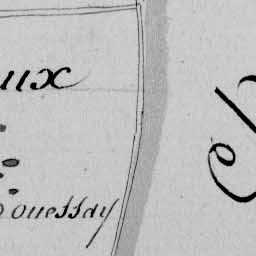 ux
ouessay